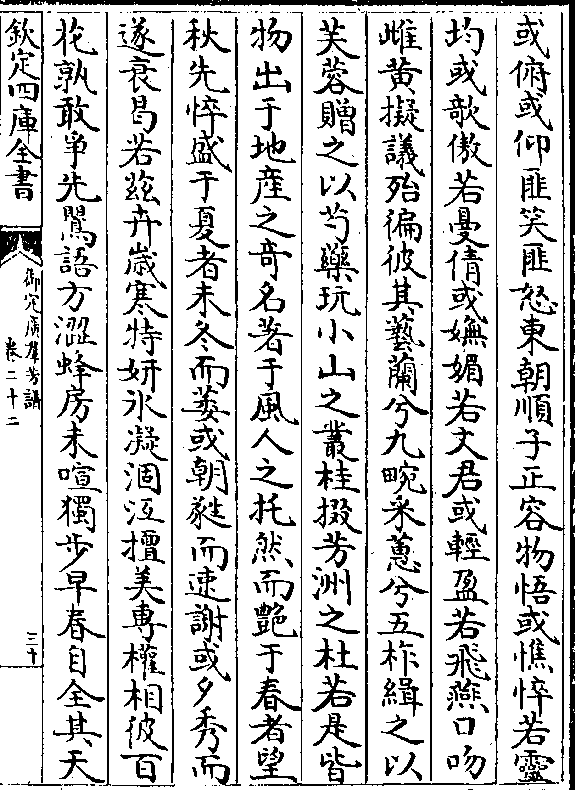 或俯或仰匪笑匪怒東朝順子正容物悟或憔悴若靈
均或歌傲若曼倩或嫵媚若文君或輕盈若飛燕口吻
雌黃擬議殆徧彼其藝蘭兮九畹采蕙兮五柞緝之以
芙蓉贈之以芍藥玩小山之叢桂掇芳洲之杜若是皆
物出于地産之竒名著于風人之托然而艷于春者望
秋先悴盛于夏者未冬而萎或朝㽔而速謝或夕秀而
遂衰曷若茲卉歲寒特妍氷凝涸沍擅美専權相彼百
花孰敢爭先鸎語方澀蜂房未喧獨步早春自全其天
欽定四庫全書
御定廣羣芳譜
卷二十二
三十